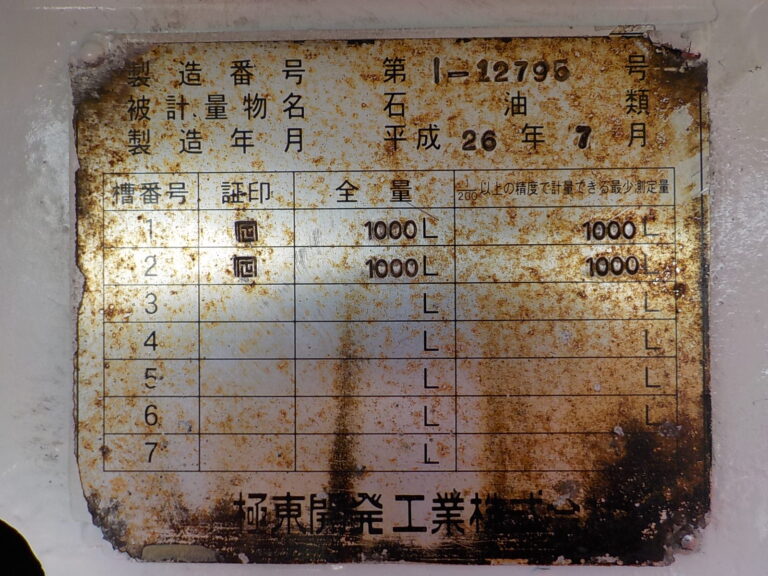 製造番号 第 1-12795 号
被計量物名 石油類
製造年月 平成 26 年 7 月
槽番号 証印 全量 1/200以上の精度で計量できる最少測定量
1 1000 L 1000 L
2 1000 L 1000 L
3 L L
4 L L
5 L L
6 L L
7 L
極東開発工業株式会